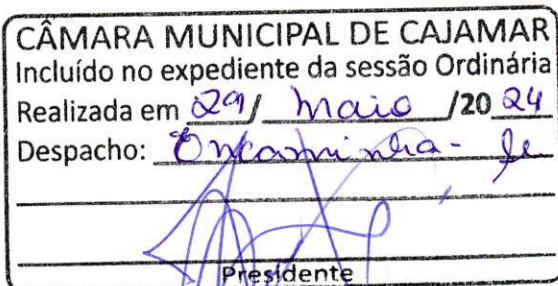 CÂMARA MUNICIPAL DE CAJAMAR
Incluído no expediente da sessão Ordinária
Realizada em 29 / maio /20 24
Despacho: Encaminha-se
Presidente